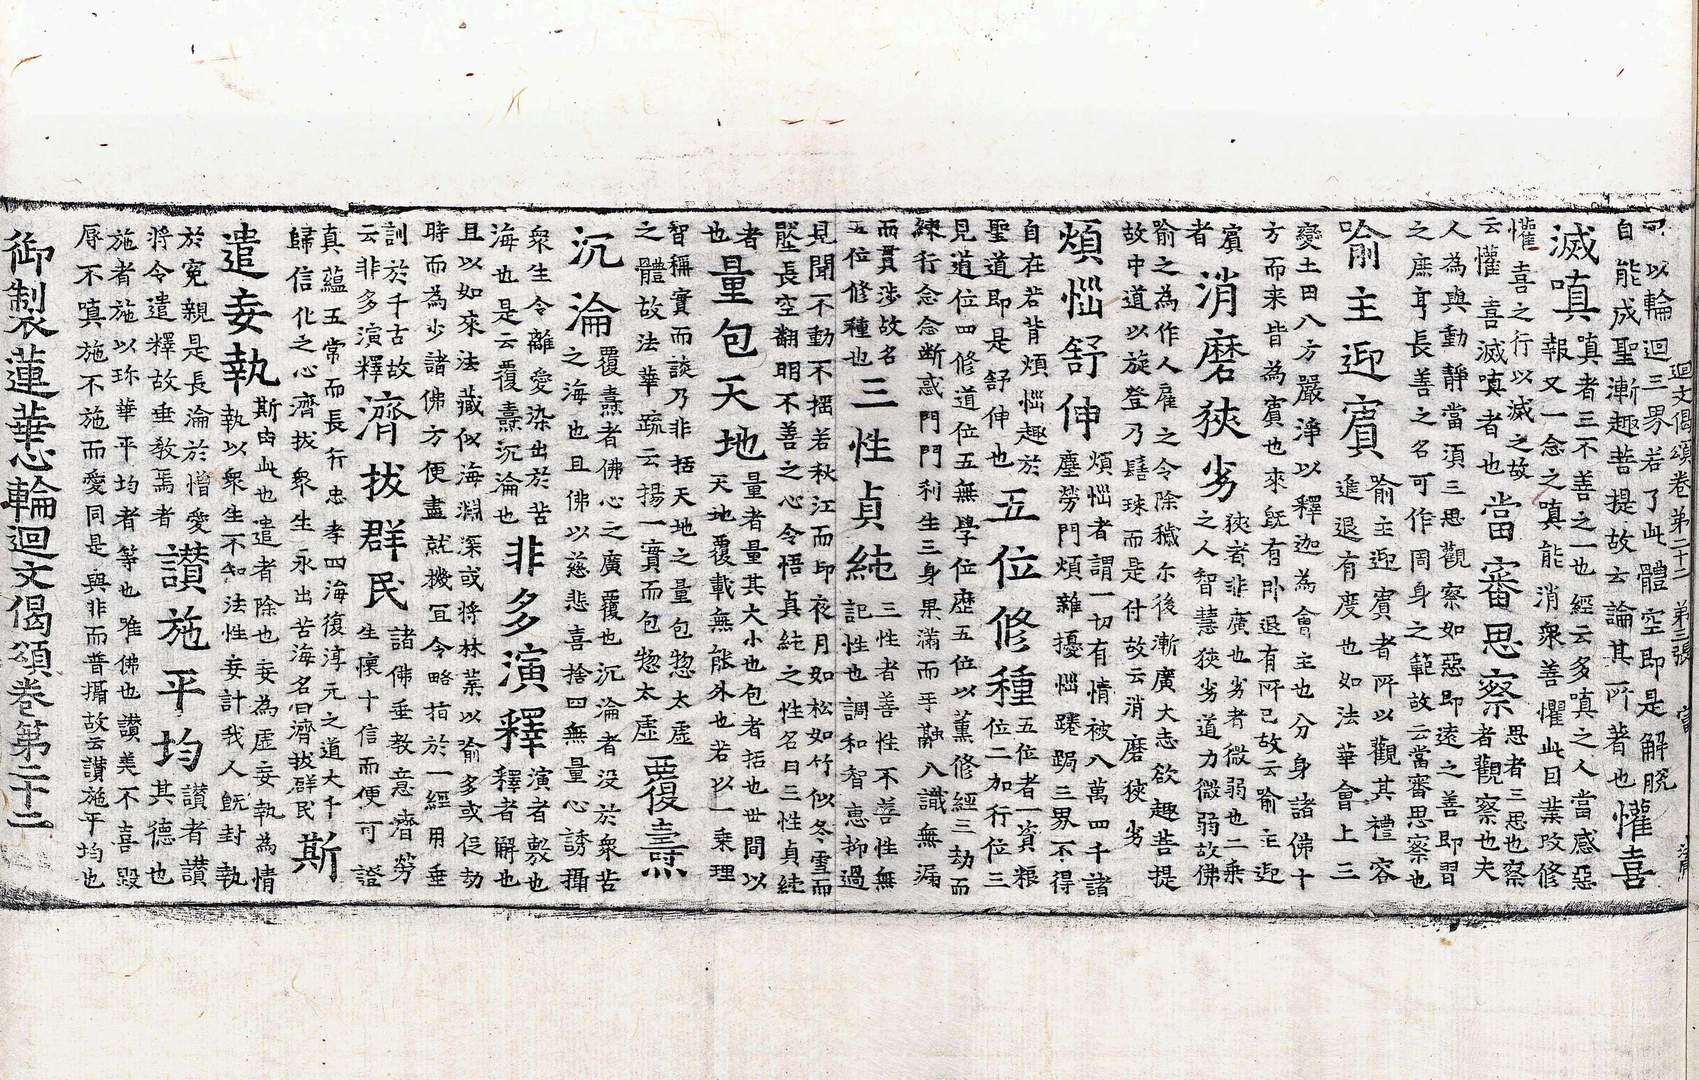 迴文偈頌卷第二十二 第三張 當
可以輪迴三界若了此體空即是解脫
自能成聖漸趣菩提故云論其所著也
懽喜
滅嗔
嗔者三不善之一也經云多嗔之人當感惡
報又一念之嗔能消衆善懼此曰業攻修
懽喜之行以滅之故
云懽喜滅嗔者也
當審思察
思者三思也察
者觀察也夫
人為與動靜當須三思觀察如惡即遠之善即習
之庶亨長善之名可作周身之範故云當審思察也
喻主迎賓
喻主迎賓者所以觀其禮容
進退有度也如法華會上三
變土田八方嚴淨以釋迦為會主也分身諸佛十
方而来皆為賓也來既有卧退有所已故云喻主迎
賓
者
消磨狹劣
狹者非廣也劣者微弱也二乗
之人智慧狹劣道力微弱故佛
喻之為作人雇之令除穢尓後漸廣大志欲趣菩提
故中道以旋登乃髻珠而是付故云消磨狹劣
煩惱舒伸
煩惱者謂一切有情被八萬四千諸
塵勞門煩雜擾惱踡跼三界不得
自在若背煩惱趣於
聖道即是舒伸也
五位修種
五位者一資粮
位二加行位三
見道位四修道位五無學位歴五位以薰修經三劫而
練行念念断惑門門利生三身果滿而乎融八識無漏
而貫涉故名
五位修種也
三性貞純
三性者善性不善性無
記性也調和智惠抑過
見聞不動不揺若秋江而印夜月如松如竹似冬雪而
長空翻明不善之心令悟貞純之性名曰三性貞純
者
也
量包天地
量者量其大小也包者括也世間以
天地覆載無能外也若以一乗理
智稱實而談乃非括天地之量包惣太虛
之體故法華疏云揚一實而包惣太虛
覆燾
沉淪
覆燾者佛心之廣覆也沉淪者没於衆苦
之海也且佛以慈悲喜捨四無量心誘攝
衆生令離愛染出於苦
海也是云覆燾沉淪也
非多演釋
演者敷也
釋者解也
且以如來法藏似海淵深或將林葉以喻多或促劫
時而為少諸佛方便盡就機冝今略指於一經用垂
訓於千古故
云非多演釋
濟拔群民
諸佛垂教意濟勞
生懷十信而便可證
真蘊五常而長行忠孝四海復淳元之道大千
歸信化之心濟拔衆生永出苦海名曰濟拔群民
斯
遣妄執
斯由此也遣者除也妄為虛妄執為情
執以衆生不知法性妄計我人既封執
於寃親是長淪於憎愛
將令遣釋故垂教焉者
讃施平均
讃者讃
其德也
施者施以珎華平均者等也唯佛也讃美不喜毀
辱不嗔施不施而愛同是與非而普攝故云讃施平均也
御製蓮華心輪迴文偈頌卷第二十二